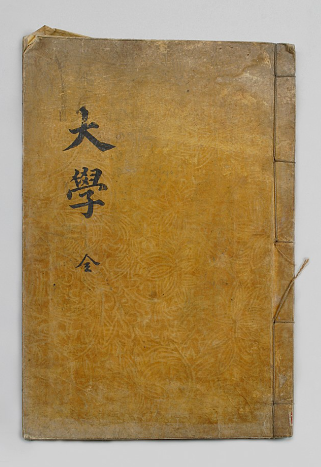 大學
全